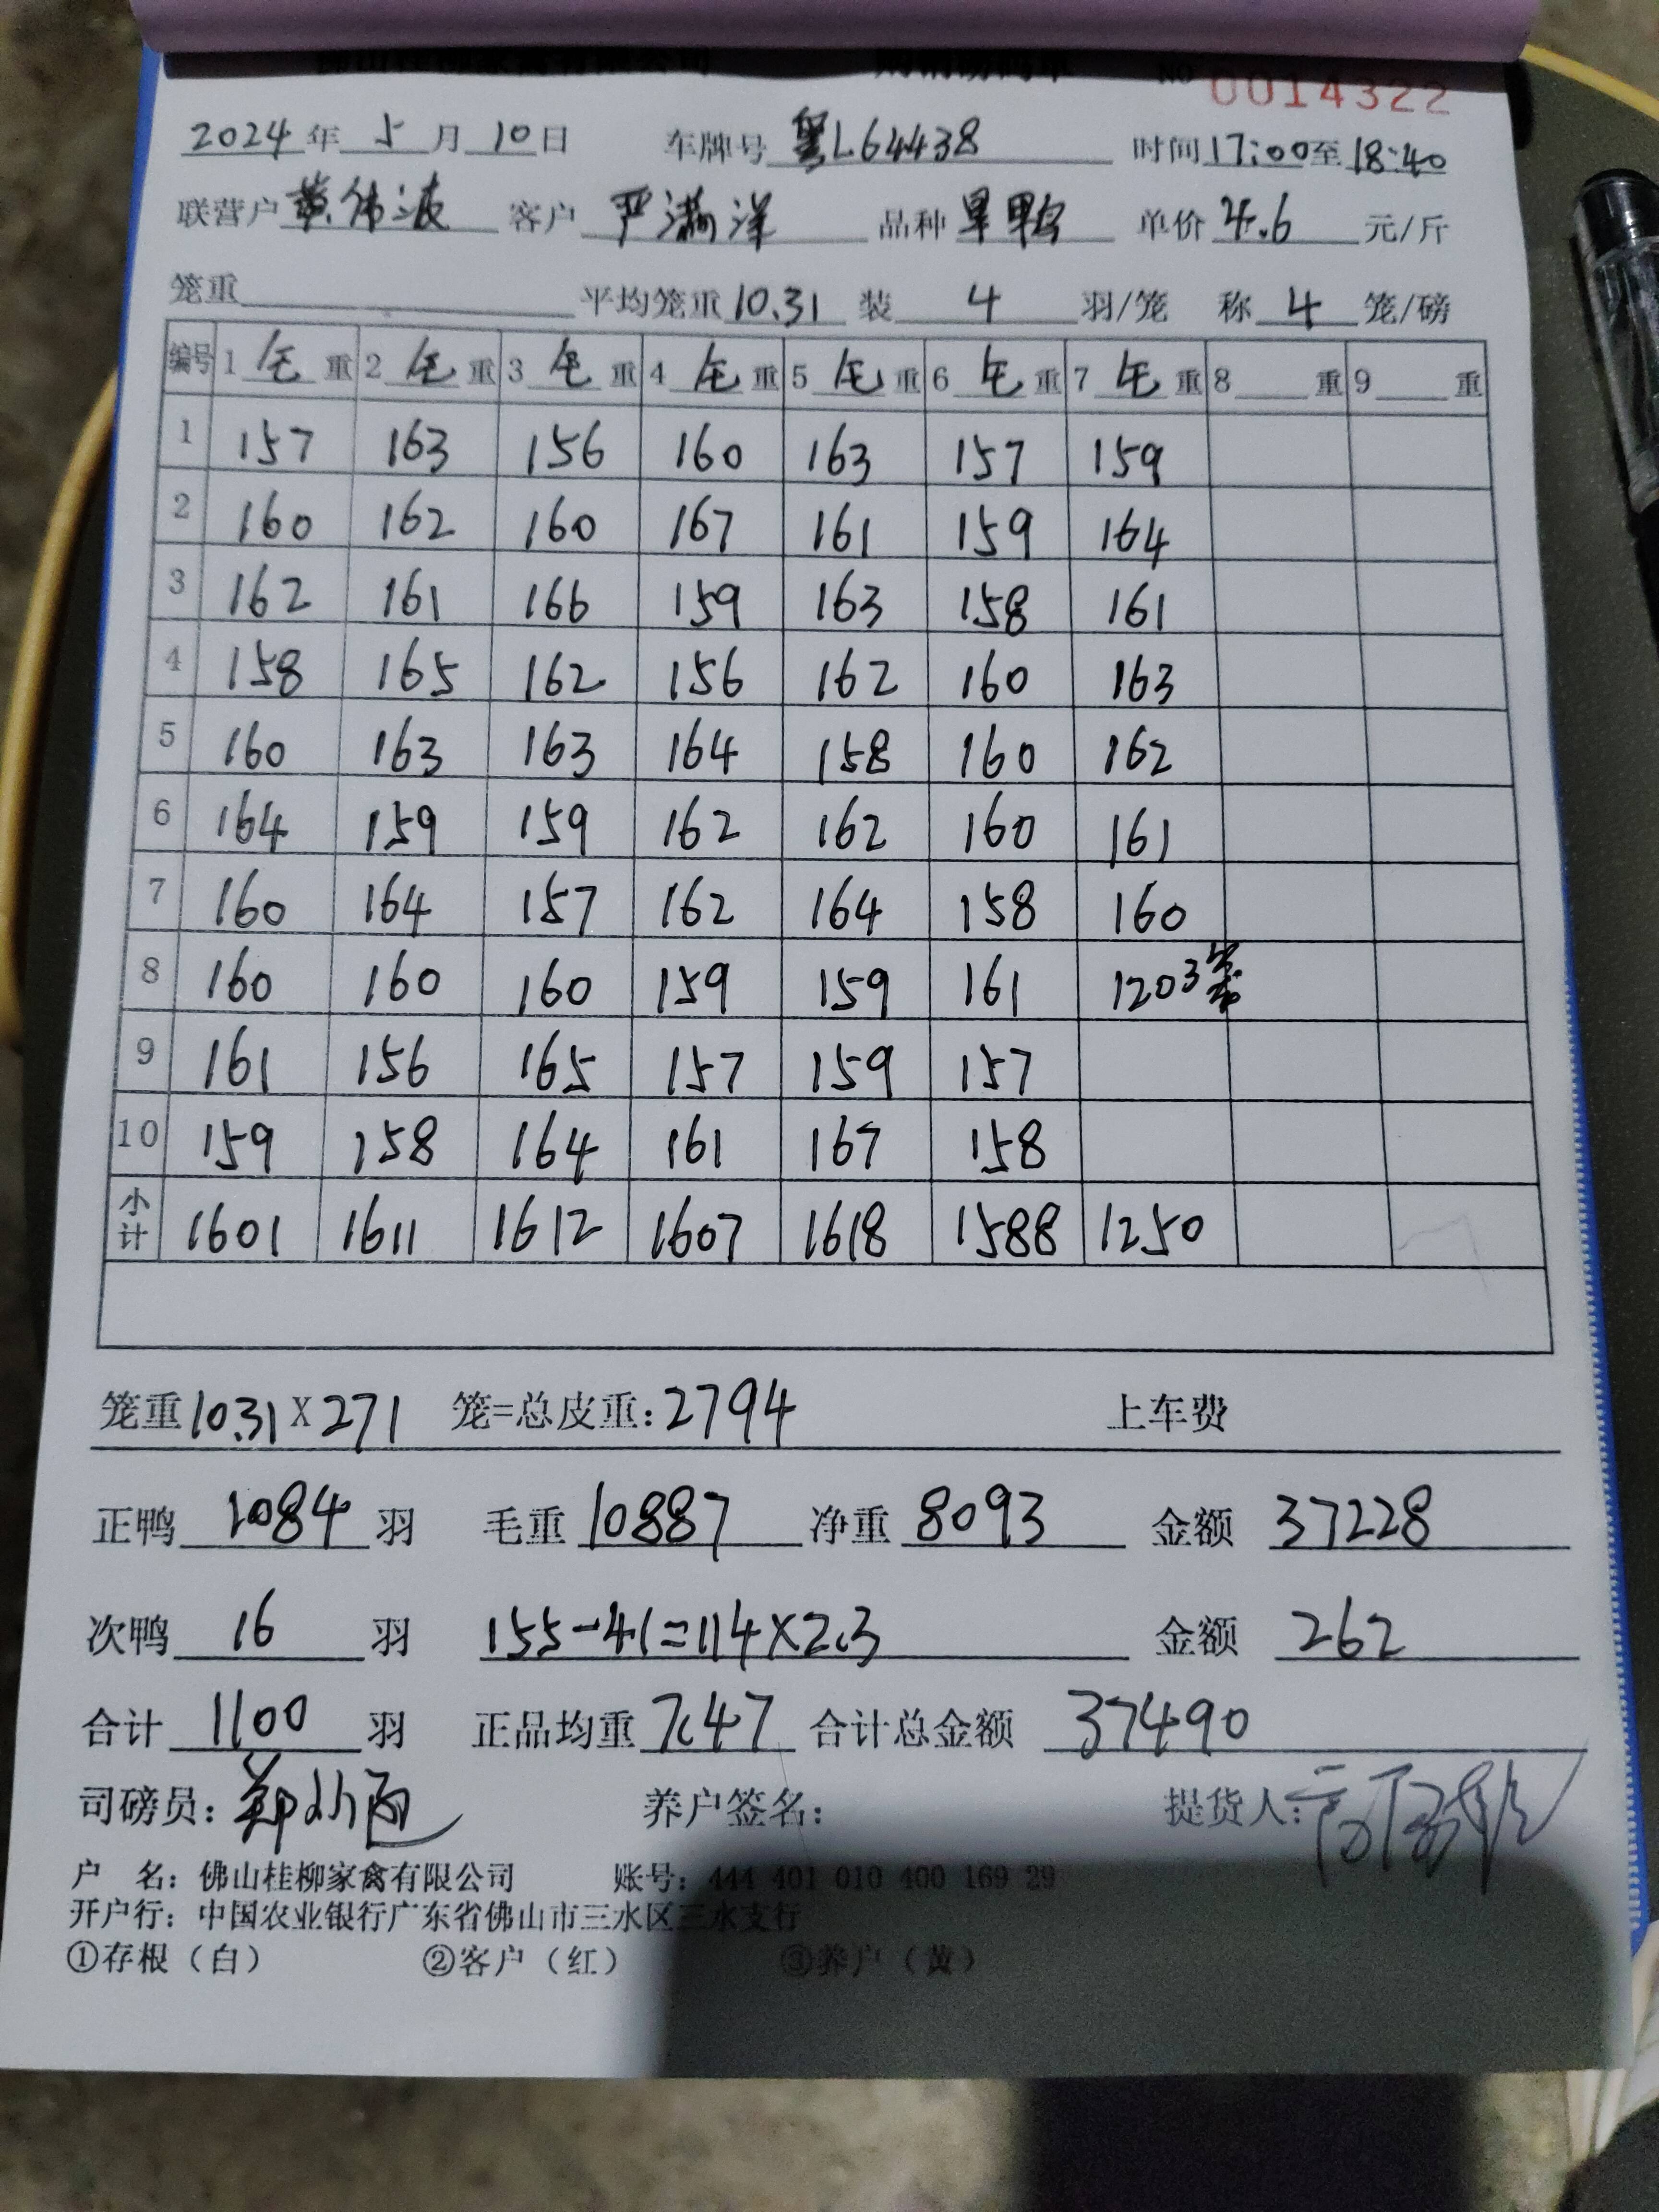 No 0014322
2024年 5月 10日 车牌号 L64438 时间 17:00至18:40
联营户 黄伟波 客户 严满洋 品种 单价 4.6 元/斤
笼重 平均笼重 10.31 装 4 羽/笼 称 4 笼/磅
编号 1 毛 重 2 毛 重 3 毛 重 4 毛 重 5 毛 重 6 毛 重 7 毛 重 8 重 9 重
1 157 163 156 160 163 157 159
2 160 162 160 167 161 159 164
3 162 161 166 159 163 158 161
4 158 165 162 156 162 160 163
5 160 163 163 164 158 160 162
6 164 159 159 162 162 160 161
7 160 164 157 162 164 158 160
8 160 160 160 159 159 161 120 3
9 161 156 165 157 159 157
10 159 158 164 161 167 158
小计 1601 1611 1612 1607 1618 1588 1250
笼重 10.31 X 271 笼=总皮重: 2794 上车费
正鸭 1084 羽 毛重 10887 净重 8093 金额 37228
次鸭 16 羽 155-41=114×2.3 金额 262
合计 1100 羽 正品均重 7.47 合计总金额 37490
司磅员: 养户签名: 提货人:
户 名: 佛山桂柳家禽有限公司 账号: 444 401 010 400 169 29
开户行: 中国农业银行广东省佛山市三水区三水支行
①存根(白) ②客户(红) ③养户(黄)